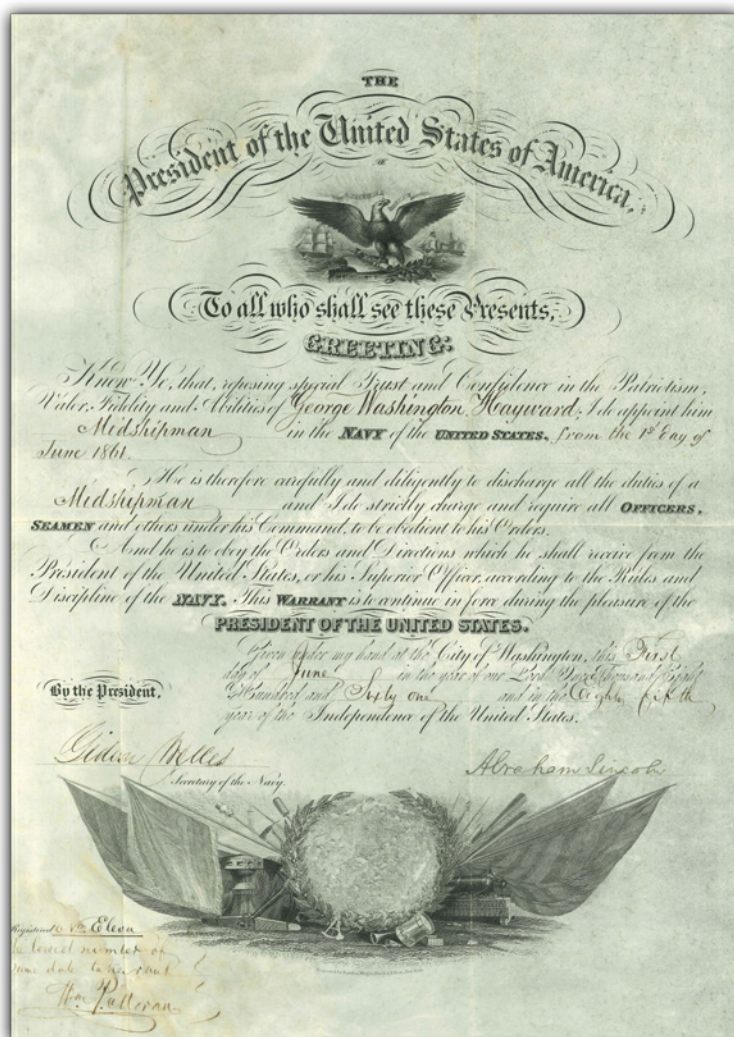 THE
President of the United States of America,
To all who shall see these Presents,
GREETING:
Know Ye, that, reposing special Trust and Confidence in the Patriotism,
Valor, Fidelity and Abilities of George Washington Hayward, I do appoint him
Midshipman in the NAVY of the UNITED STATES, from the 1st day of
June 1861.
He is therefore carefully and diligently to discharge all the duties of a
Midshipman and I do strictly charge and require all OFFICERS,
SEAMEN and others under his Command, to be obedient to his Orders.
And he is to obey the Orders and Directions which he shall receive from the
President of the United States, or his Superior Officer, according to the Rules and
Discipline of the NAVY. This WARRANT is to continue in force during the pleasure of the
PRESIDENT OF THE UNITED STATES.
Given under my hand at the City of Washington, this First
day of June in the year of our Lord One Thousand Eight
Hundred and Sixty one and in the Eighty fifth
year of the Independence of the United States.
By the President,
Gideon Welles
Secretary of the Navy.
Abraham Lincoln
Registered No Eleven
lowest number of
same date takes rank